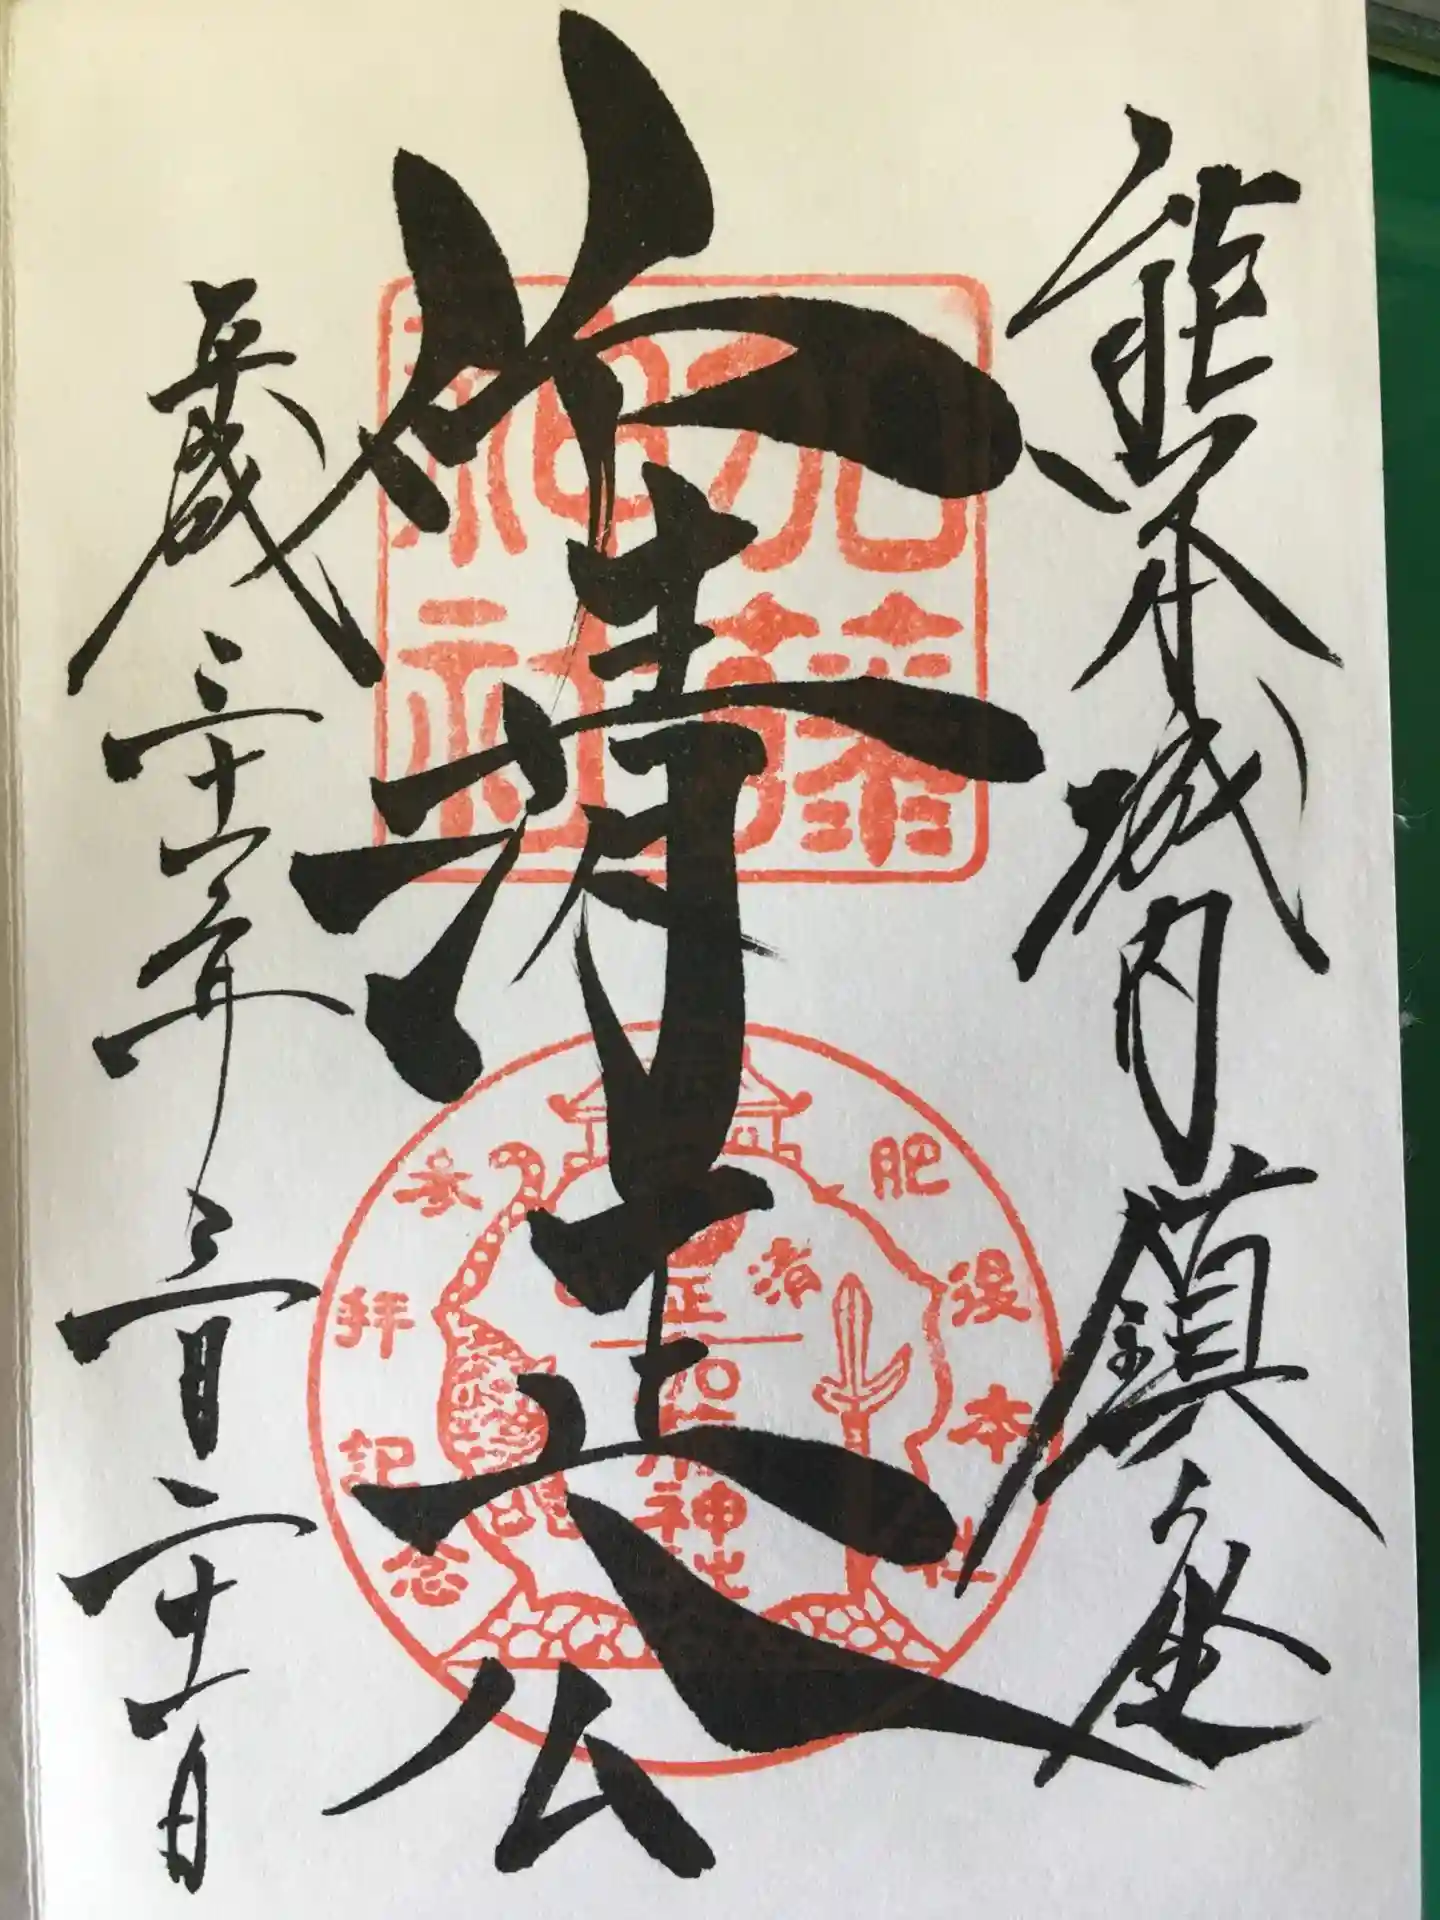 熊本城内鎮座
仰清正公
平成三十一年三月二十一日
加藤神社
肥後本社
参拝記念
清正
加藤神社